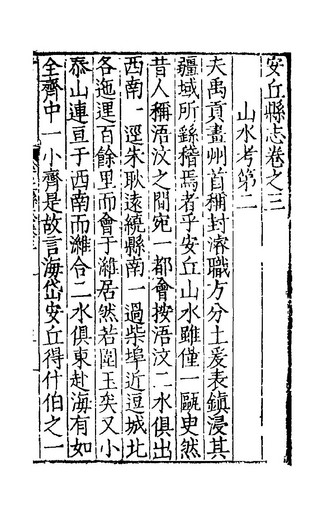 安丘縣志卷之三
山水考第二
夫禹貢畫州首稱封濬職方分土爰表鎮浸其
疆域所繇稽焉者乎安丘山水雖僅一甌臾然
昔人稱浯汶之間宛一都會按浯汶二水俱出
西南一逕朱耿遠繞縣南一過柴埠近逗城北
各迤逕百餘里而會于濰居然若圍玉矣又小
泰山連亘于西南而濰合二水俱東赴海有如
全齊中一小齊是故言海岱安丘得什伯之一